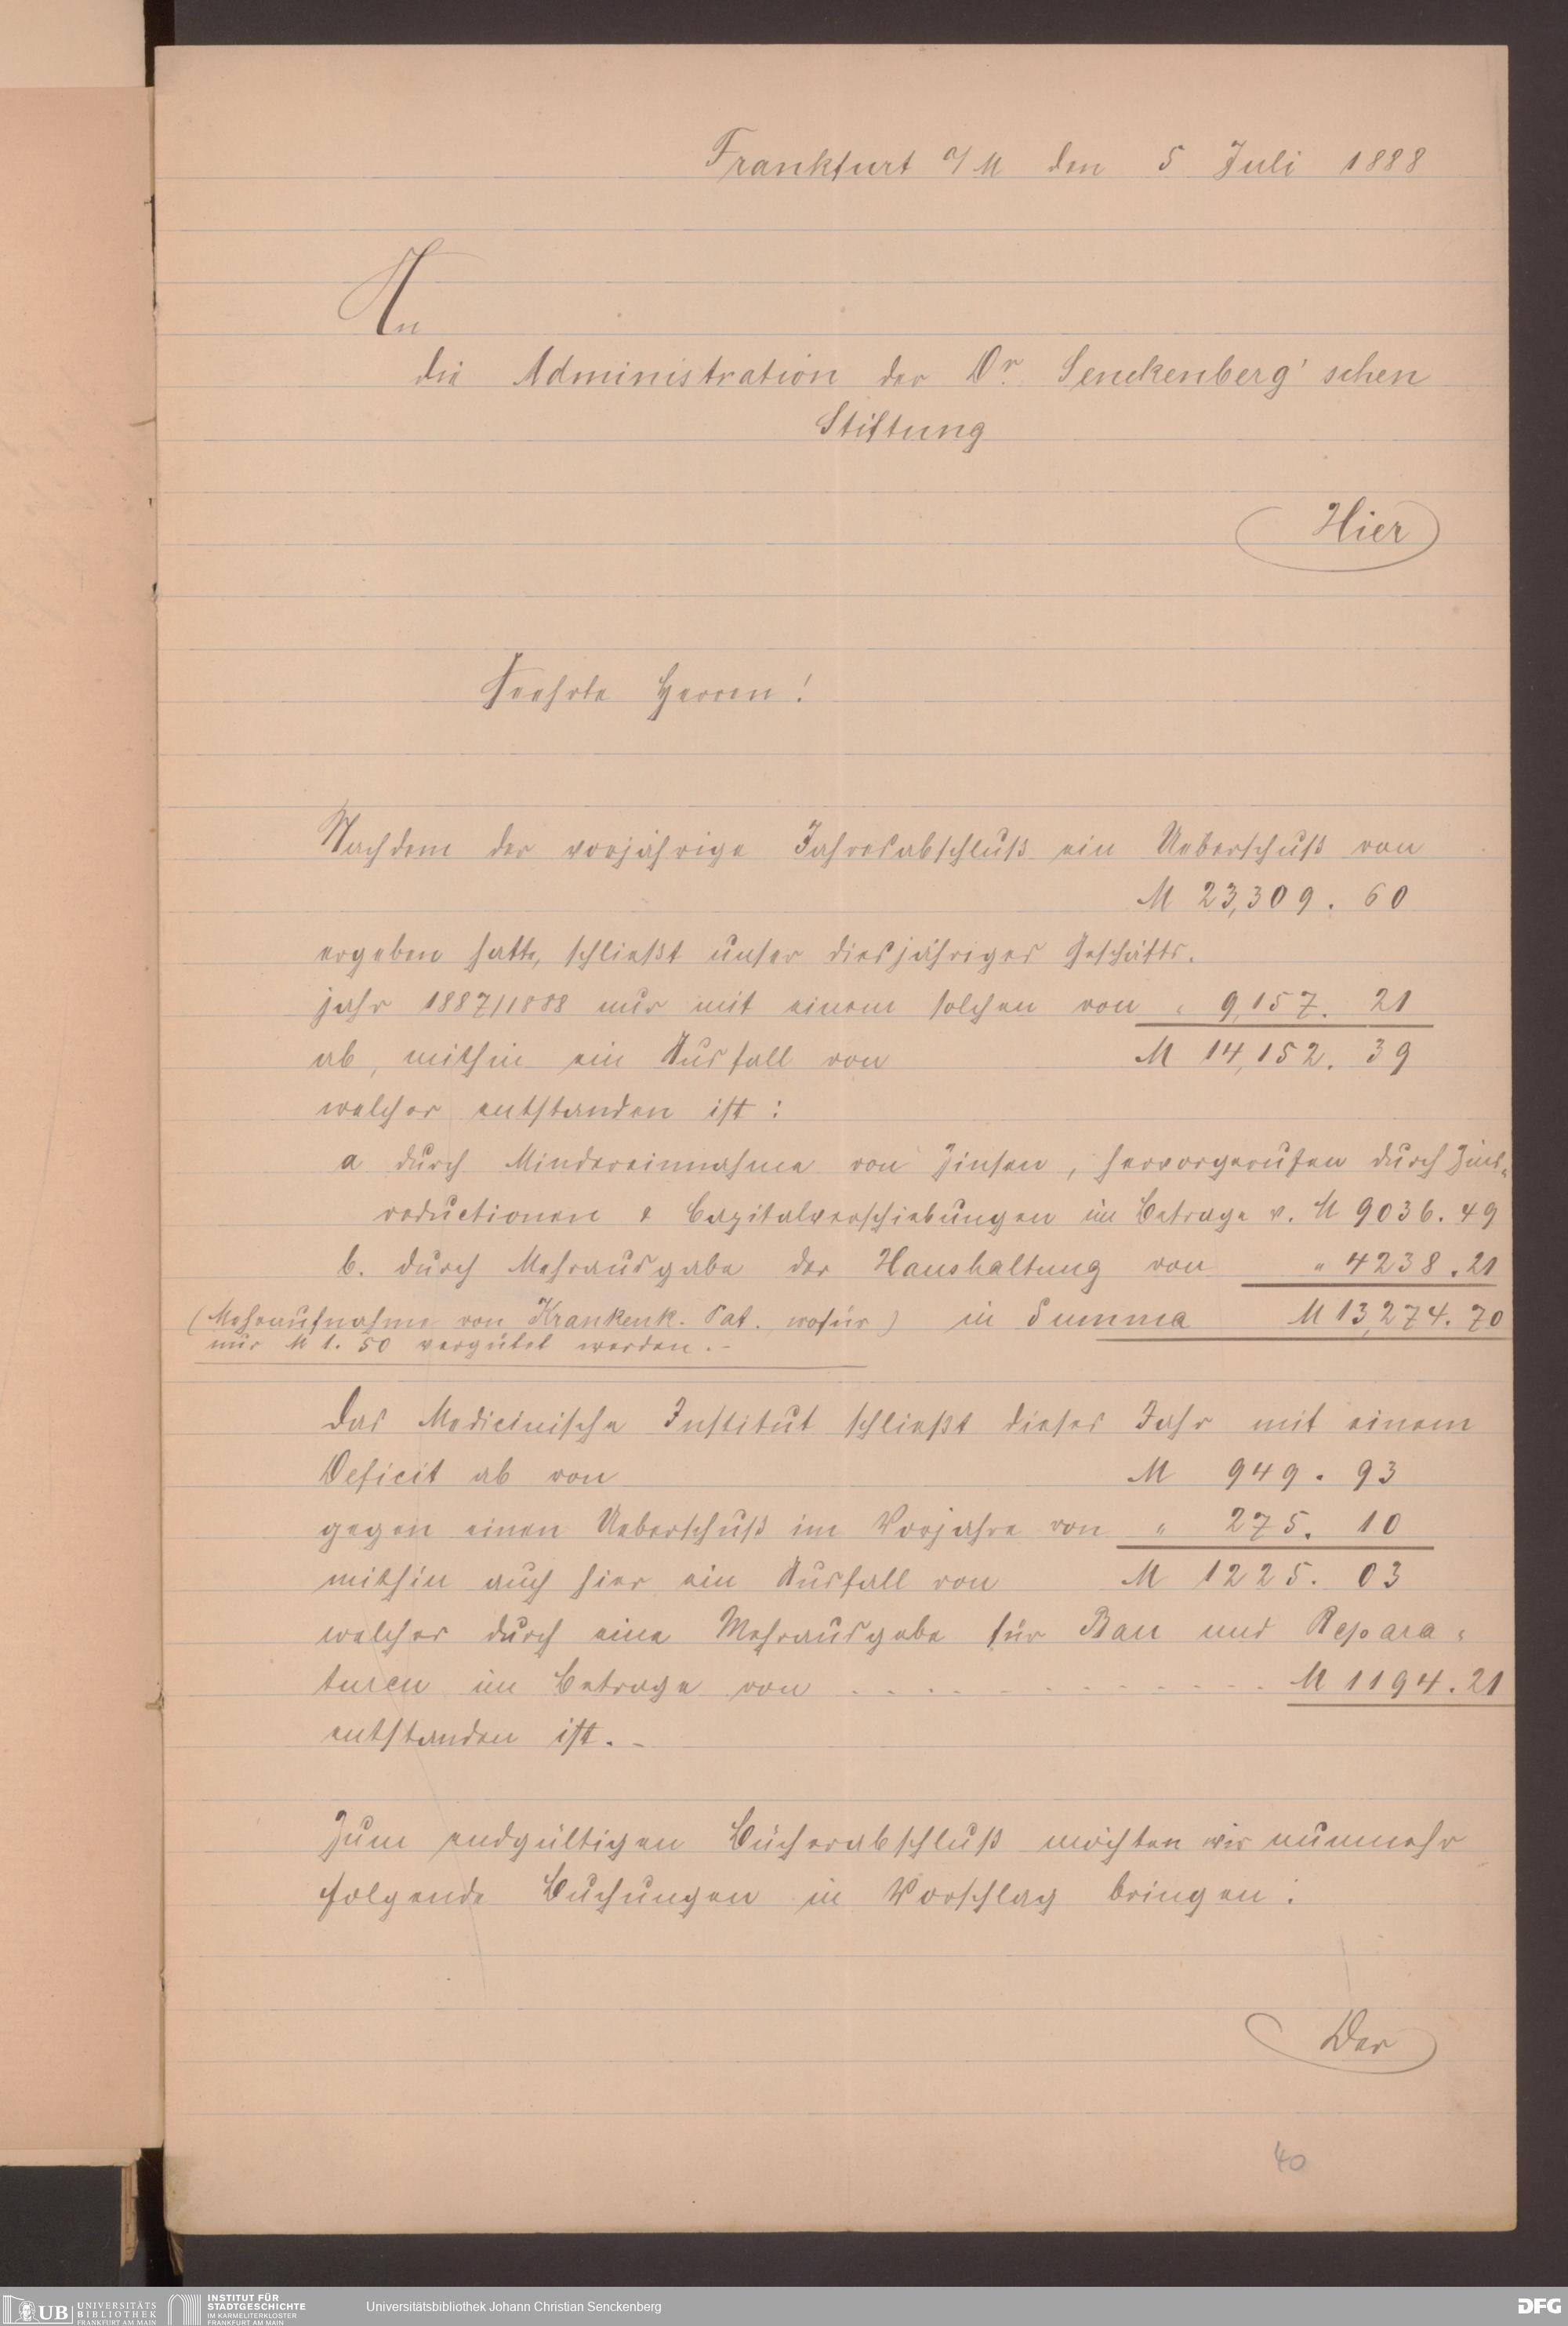 Frankfurt a/M den 5 Juli 1888
An
die Administration der Dr. Senckenberg'schen
Stiftung
Hier
Geehrte Herren!
Nachdem der vorjährige Jahresabschluß ein Ueberschuß von
M 23,309. 60
ergeben hatte, schließt unser diesjähriges Geschäfts-
jahr 1887/1888 nur mit einem solchen von " 9,157. 21
ab, mithin ein Ausfall von M 14,152. 39
welcher entstanden ist:
a durch Mindereinnahme von Zinsen, hervorgerufen durch Zins-
reductionen & Capitalverschiebungen im Betrage v. M 9036. 49
b. durch Mehrausgabe der Haushaltung von " 4238.21
(Mehraufnahme von Krankenk. Pat. wofür) in Summa M 13,274. 70
nur M 1. 50 vergütet werden. -
Das Medicinische Institut schließt dieses Jahr mit einem
Deficit ab von M 949. 93
gegen einen Ueberschuß im Vorjahre von " 275. 10
mithin auch hier ein Ausfall von M 1225. 03
welcher durch eine Mehrausgabe für Bau und Repara-
turen im Betrage von . . . . - - - - - - - - - M 1194.21
entstanden ist. -
Zum endgültigen Bücherabschluß möchten wir nunmehr
folgende Buchungen in Vorschlag bringen:
Der
40
UB UNIVERSITÄTS
BIBLIOTHEK
FRANKFURT AM MAIN
INSTITUT FÜR
STADTGESCHICHTE
IM KARMELITERKLOSTER
FRANKFURT AM MAIN
Universitätsbibliothek Johann Christian Senckenberg
DFG